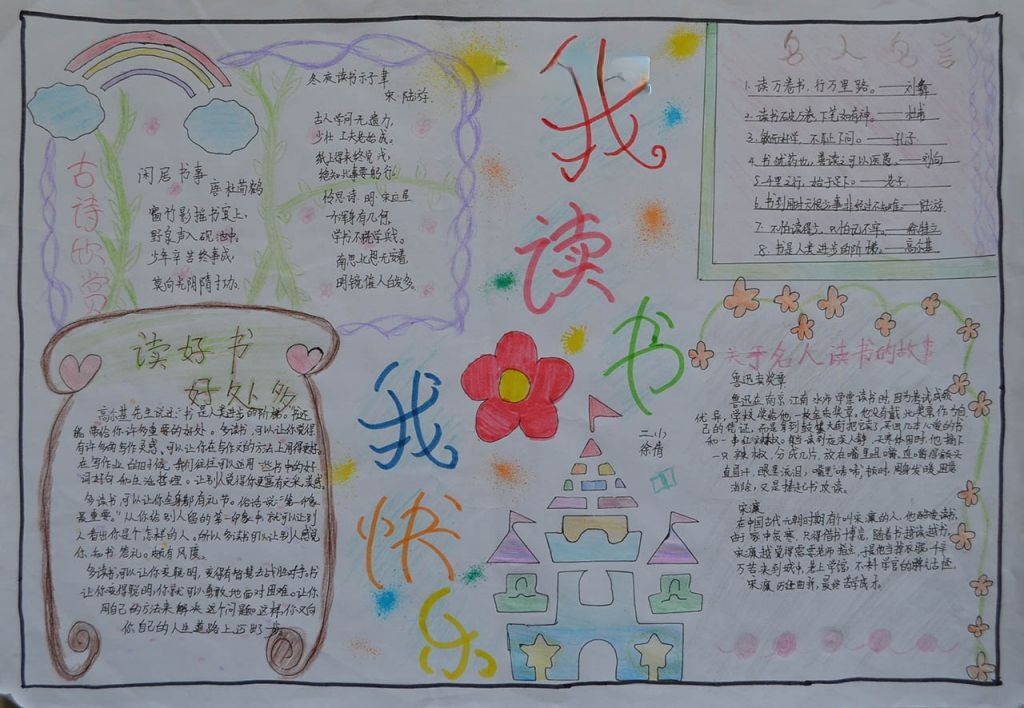 古诗欣赏
闲居书事
唐 杜荀鹤
窗竹影摇书案上,
野泉声入砚池中。
少年辛苦终事成,
莫向光阴惰寸功。
冬夜读书示子聿
宋·陆游
古人学问无遗力,
少壮工夫老始成。
纸上得来终觉浅,
绝知此事要躬行。
怜愚诗·明·宋应星
一个浑身有几何,
学书不就学兵戈。
南思北想无安着,
明镜催人白发多。
我读书
我快乐
名人名言
1. 读万卷书,行万里路。——刘彝
2. 读书破万卷,下笔如有神。——杜甫
3. 敏而好学,不耻下问。——孔子
4. 书犹药也,善读之可以医愚。——刘向
5. 千里之行,始于足下。——老子
7. 不怕读得少,只怕记不牢。——徐特立
8. 书是人类进步的阶梯。——高尔基
读好书
好处多
高尔基先生说过:“书是人类进步的阶梯。书还
能带给你许多重要的好处。多读书,可以让你觉得
有许多的写作灵感。可以让你在写作文的方法上用得更好。
在写作业的时候,我们往往可以运用一些书中的好
词好句和生活哲理。让别人觉得你更富有文采、美感。
多读书,可以让你全身都有礼节。俗话说:“第一印象
最重要。”从你给别人留的第一印象中,就可以让别
人看出你是个怎样的人。所以多读书可以让人感觉
你知书答礼。颇有风度。
多读书,可以让你变聪明,变得有智慧去战胜对手。书
让你变得聪明,你就可以勇敢地面对困难。让你
用自己的方法来解决这个问题。这样,你又向
你自己的人生道路上迈出了一步。
二小
徐倩
关于名人读书的故事
鲁迅卖奖章
鲁迅在南京江南水师学堂读书时,因为考试成绩
优异,学校奖给他一枚金质奖章。他没有戴此奖章作为自
己的凭证,而是拿到鼓楼大街把它卖了,买回几本心爱的书
和一串红辣椒。每当读到夜深人静、天寒体困时,他摘下
一只辣椒,分成几片,放在嘴里咀嚼,直嚼得额头
直冒汗,眼里流泪,嘴里“唏唏”,顿时,周身发暖,困意
消除,又是捧起书攻读。
宋濂
在中国古代元朝时期有个叫宋濂的人,他酷爱读书,
由于家中贫寒,只得借书博览,随着书越读越多,